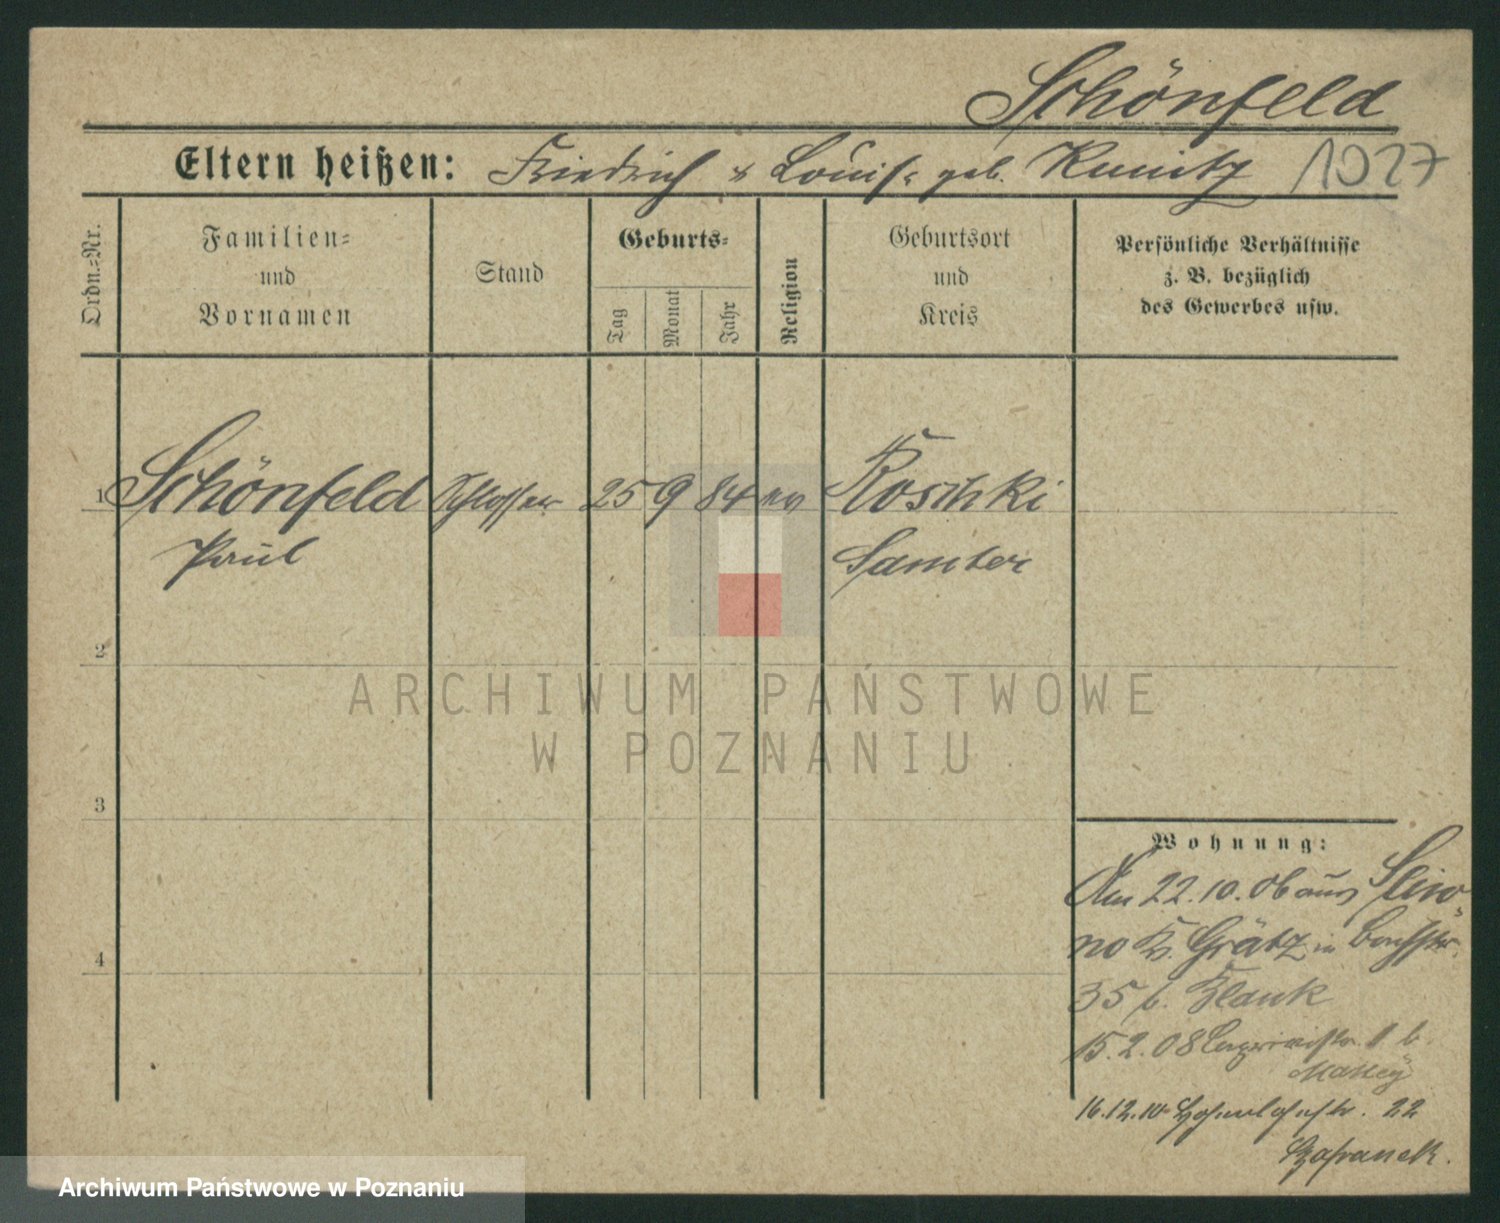 Schönfeld
Eltern heißen: Friedrich & Louise geb. Kunitz 1927
Ordn.-Nr.
Familien-
und
Vornamen
Stand
Geburts-
Tag
Monat
Jahr
Religion
Geburtsort
und
Kreis
Persönliche Verhältnisse
z. B. bezüglich
des Gewerbes usw.
1 Schönfeld Schlosser 25 9 84 ev Koschki
Paul Samter
2
ARCHIWUM PAŃSTWOWE
W POZNANIU
3
4
Wohnung:
Am 22.10.06 aus Sliw-
no Kr. Grätz in
35 b. Blank
15.2.08 b.
16.12.10 Hohenlohestr. 22
Szafranek.
Archiwum Państwowe w Poznaniu